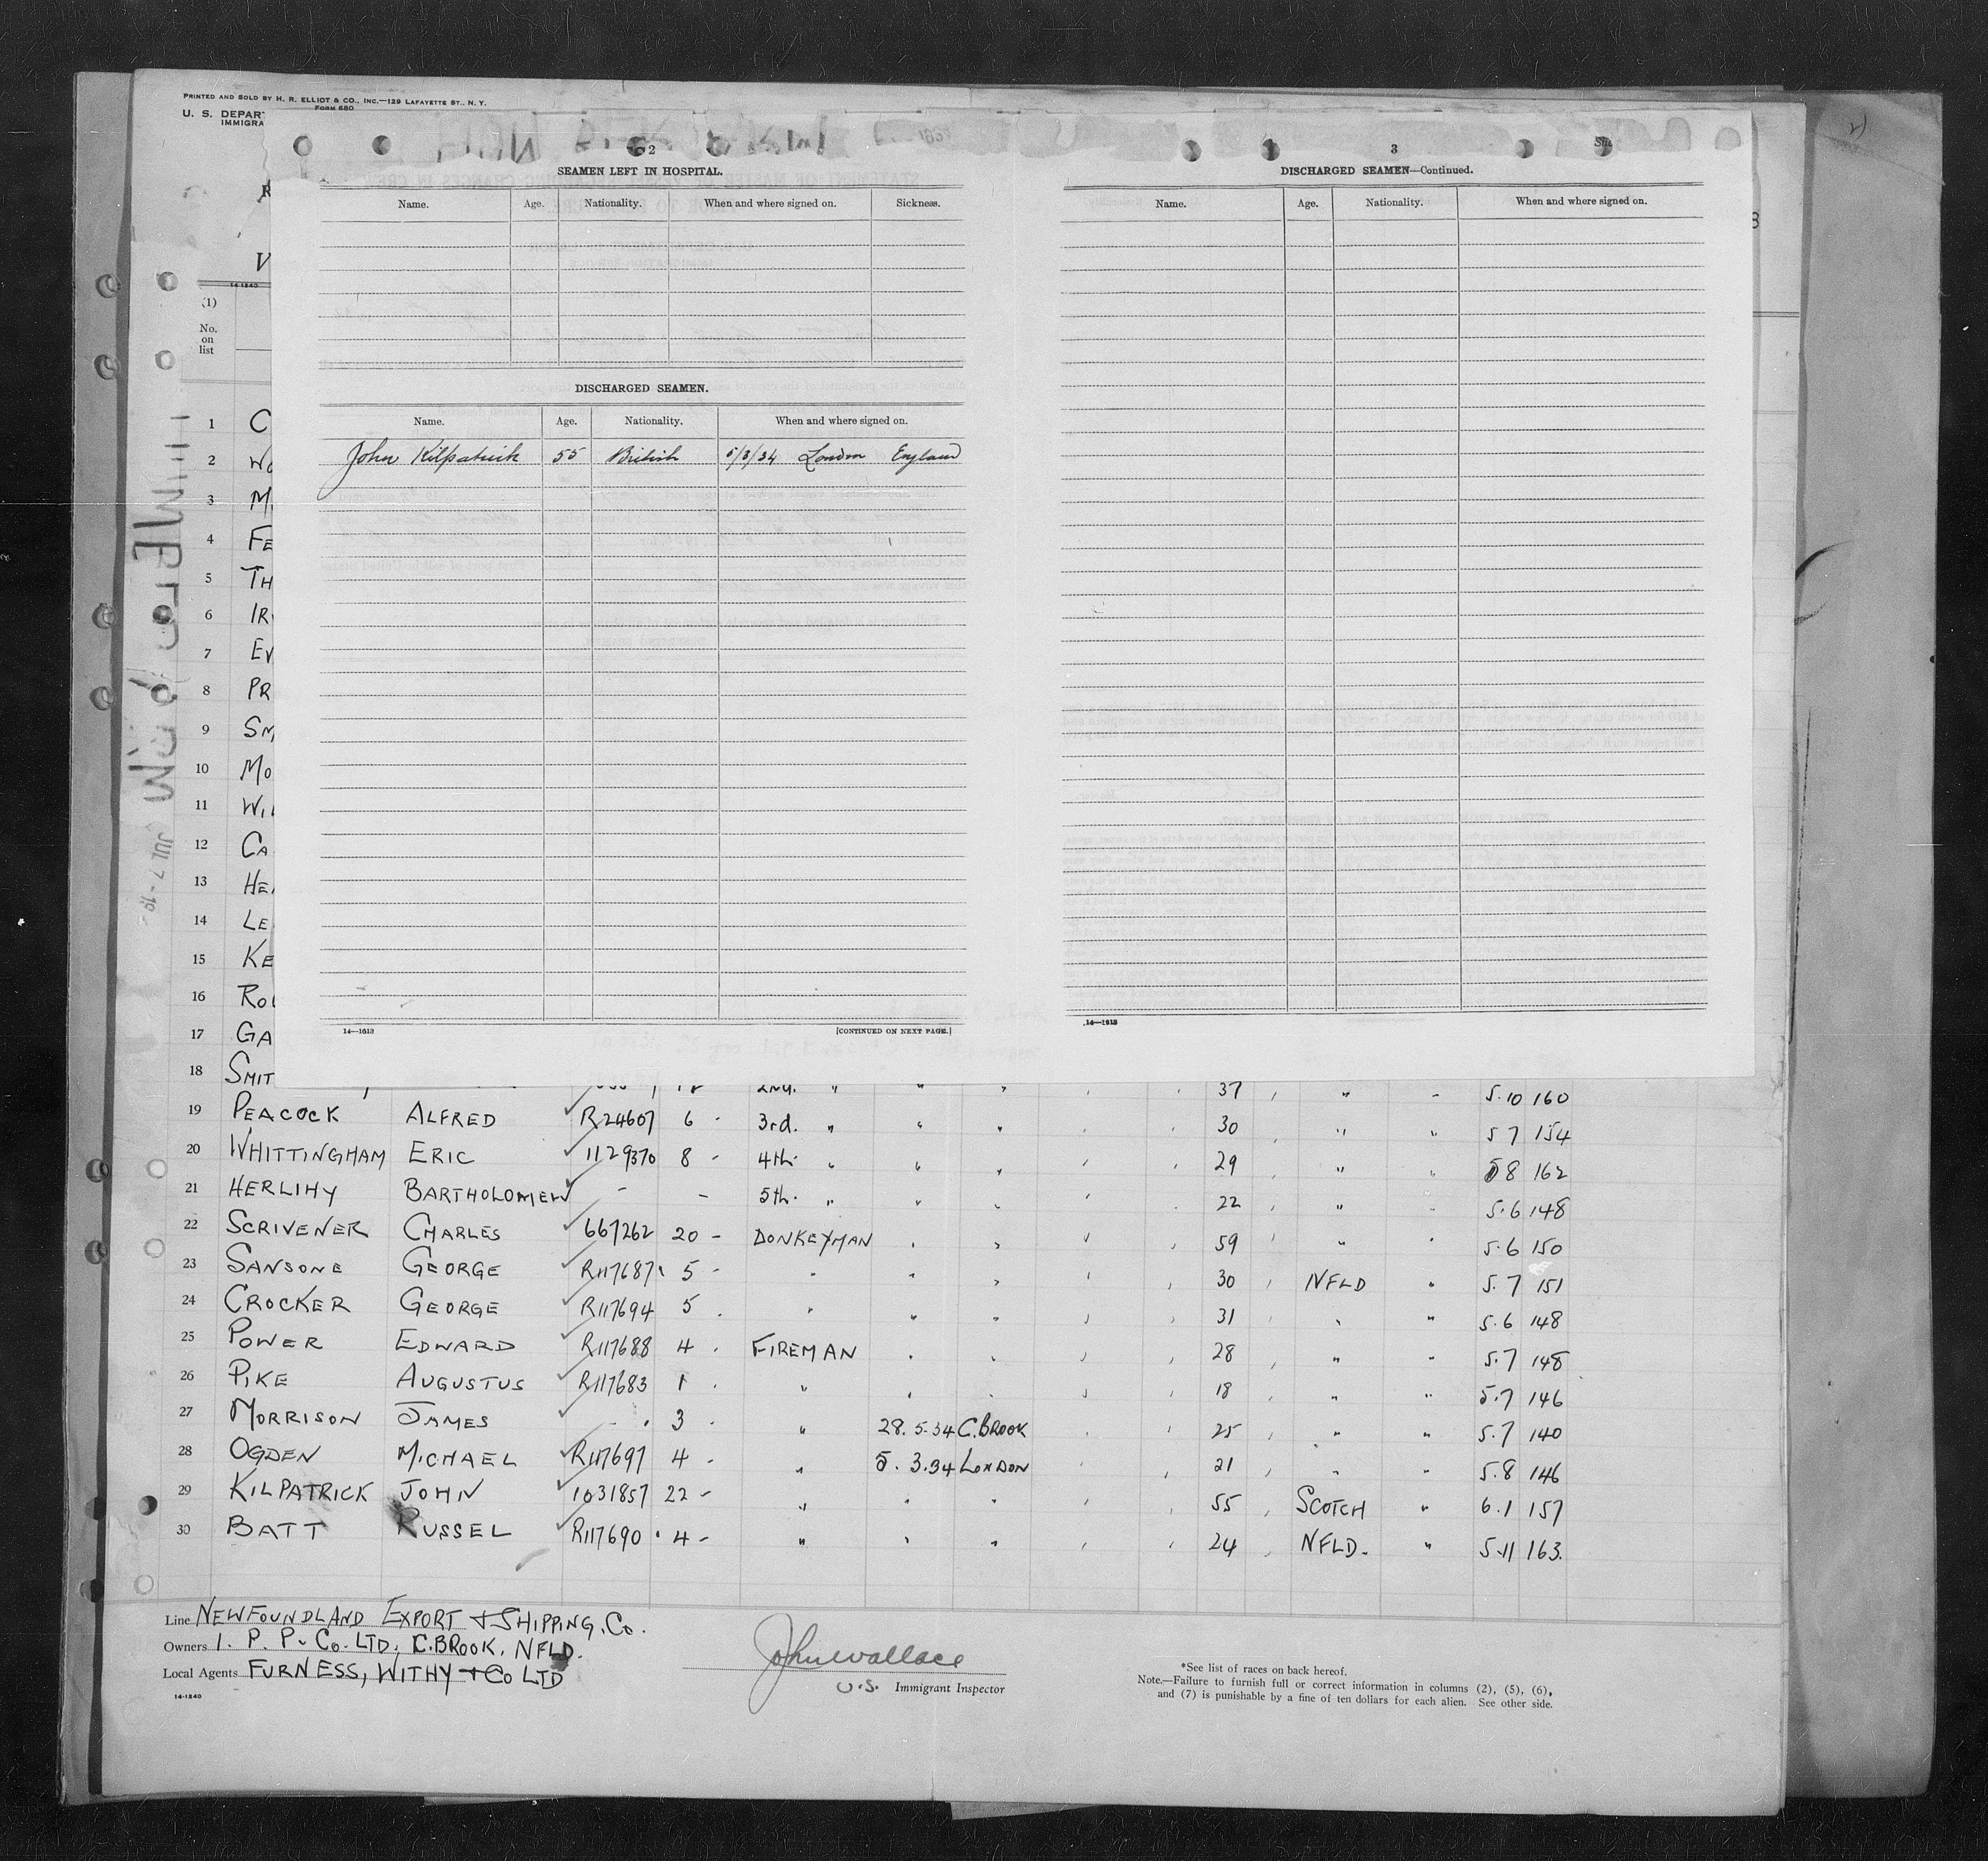 PRINTED AND SOLD BY H. R. ELLIOT & CO., INC.—129 LAFAYETTE ST., N. Y.
FORM 680
U. S. DEPAR
IMMIGRA
2
SEAMEN LEFT IN HOSPITAL.
Name. Age. Nationality. When and where signed on. Sickness.
DISCHARGED SEAMEN.
Name. Age. Nationality. When and where signed on.
John Kilpatrick 55 British 5/3/34 London England
14—1613 [CONTINUED ON NEXT PAGE.]
3
DISCHARGED SEAMEN—Continued.
Name. Age. Nationality. When and where signed on.
14—1613
14-1240
(1)
No.
on
list
1 C
2 WO
3 M
4 FE
5 TH
6 IR
7 EV
8 PR
9 SM
10 MO
11 WIL
12 CA
13 HE
14 LE
15 KE
16 ROU
17 GA
18 SMIT 2ND. " " " 37 " 5.10 160
19 PEACOCK ALFRED R24607 6 - 3rd. " " " 30 " " 5 7 154
20 WHITTINGHAM ERIC 1129370 8 - 4th. " " " 29 " " 5 8 162
21 HERLIHY BARTHOLOMEW - - 5th. " " " 22 " " 5.6 148
22 SCRIVENER CHARLES 667262 20 - DONKEYMAN " " 59 " " 5.6 150
23 SANSONE GEORGE R117687 5 - " " " 30 NFLD " 5.7 151
24 CROCKER GEORGE R117694 5 . " " " 31 " " 5.6 148
25 POWER EDWARD R117688 4 . FIREMAN " " 28 " " 5.7 148
26 PIKE AUGUSTUS R117683 1 . " " " 18 " " 5.7 146
27 MORRISON JAMES - 3 - " 28.5.34 C.BROOK 25 " " 5.7 140
28 OGDEN MICHAEL R117697 4 - " 5.3.34 LONDON 21 " " 5.8 146
29 KILPATRICK JOHN 1031857 22 - " " " 55 SCOTCH " 6.1 157
30 BATT RUSSEL R117690 4 - " " " 24 NFLD. " 5.11 163.
Line NEWFOUNDLAND EXPORT & SHIPPING. Co.
Owners I. P. P. Co. LTD, C.BROOK, NFLD.
Local Agents FURNESS, WITHY & Co LTD
14-1240
John Wallace
U.S. Immigrant Inspector
*See list of races on back hereof.
Note.—Failure to furnish full or correct information in columns (2), (5), (6),
and (7) is punishable by a fine of ten dollars for each alien. See other side.